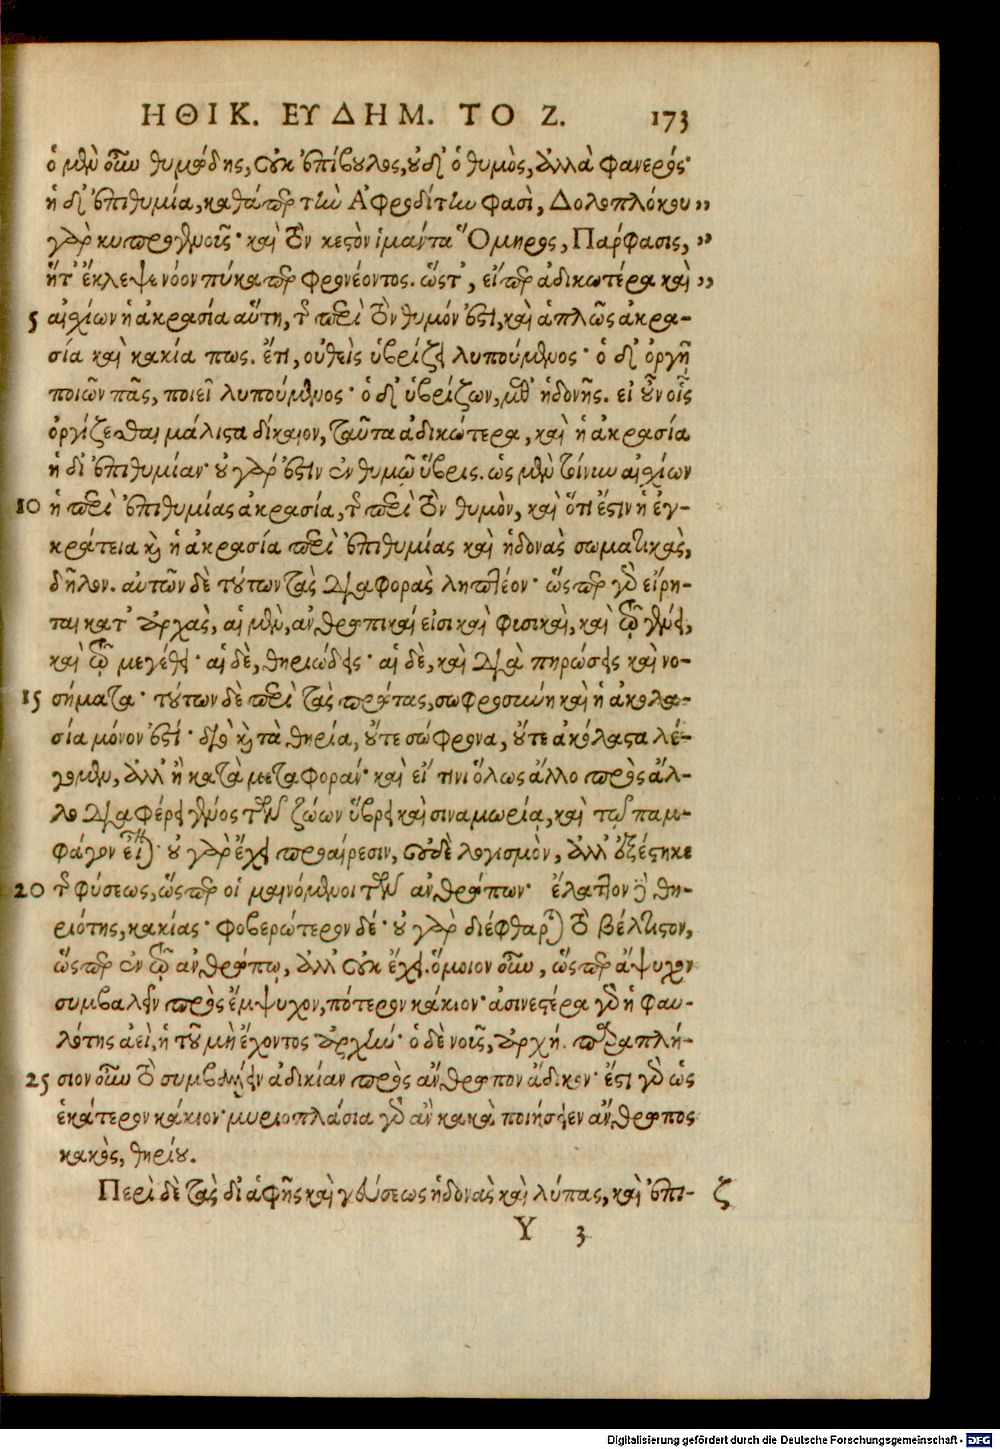 ΗΘΙΚ. ΕΥΔΗΜ. ΤΟ Ζ. 173
ὁ μὲν οὖν θυμώδης, οὐκ ἐπίβουλος, οὐδ' ὁ θυμὸς, ἀλλὰ φανερός·
ἡ δ' ἐπιθυμία, καθάπερ τὴν Ἀφροδίτην φασὶ, Δολοπλόκου ,,
γὰρ κυπρογενοῦς· καὶ τὸν κεστὸν ἱμάντα Ὅμηρος, Πάρφασις, ,,
ἥτ' ἔκλεψε νόον πύκα περ φρονέοντος. ὥστ', εἴπερ ἀδικωτέρα καὶ ,,
5 αἰσχίων ἡ ἀκρασία αὕτη, τῆς περὶ τὸν θυμόν ἐστι, καὶ ἁπλῶς ἀκρα-
σία καὶ κακία πως. ἔτι, οὐθεὶς ὑβρίζει λυπούμενος· ὁ δ' ὀργῇ
ποιῶν πᾶς, ποιεῖ λυπούμενος· ὁ δ' ὑβρίζων, μεθ' ἡδονῆς. εἰ οὖν οἷς
ὀργίζεσθαι μάλιστα δίκαιον, ταῦτα ἀδικώτερα, καὶ ἡ ἀκρασία
ἡ δι' ἐπιθυμίαν· οὐ γάρ ἐστιν ἐν θυμῷ ὕβρις. ὡς μὲν τοίνυν αἰσχίων
10 ἡ περὶ ἐπιθυμίας ἀκρασία, τῆς περὶ τὸν θυμὸν, καὶ ὅτι ἔστιν ἡ ἐγ-
κράτεια καὶ ἡ ἀκρασία περὶ ἐπιθυμίας καὶ ἡδονὰς σωματικὰς,
δῆλον. αὐτῶν δὲ τούτων τὰς διαφορὰς ληπτέον· ὥσπερ γὰρ εἴρη-
ται κατ' ἀρχὰς, αἱ μὲν, ἀνθρωπικαί εἰσι καὶ φυσικαὶ, καὶ τῷ γένει,
καὶ τῷ μεγέθει· αἱ δὲ, θηριώδεις· αἱ δὲ, καὶ διὰ πηρώσεις καὶ νο-
15 σήματα· τούτων δὲ περὶ τὰς πρώτας, σωφροσύνη καὶ ἡ ἀκολα-
σία μόνον ἐστί· διὸ καὶ τὰ θηρία, οὔτε σώφρονα, οὔτε ἀκόλαστα λέ-
γομεν, ἀλλ' ἢ κατὰ μεταφοράν· καὶ εἴ τινι ὅλως ἄλλο πρὸς ἄλ-
λο διαφέρει γένος τῶν ζώων ὕβρει καὶ σιναμωρίᾳ, καὶ τῷ παμ-
φάγον εἶναι· οὐ γὰρ ἔχει προαίρεσιν, οὐδὲ λογισμὸν, ἀλλ' ἐξέστηκε
20 τῆς φύσεως, ὥσπερ οἱ μαινόμενοι τῶν ἀνθρώπων· ἔλαττον δὲ θη-
ριότης, κακίας· φοβερώτερον δέ· οὐ γὰρ διέφθαρται τὸ βέλτιστον,
ὥσπερ ἐν τῷ ἀνθρώπῳ, ἀλλ' οὐκ ἔχει. ὅμοιον οὖν, ὥσπερ ἄψυχον
συμβαλεῖν πρὸς ἔμψυχον, πότερον κάκιον· ἀσινεστέρα γὰρ ἡ φαυ-
λότης ἀεὶ, ἡ τοῦ μὴ ἔχοντος ἀρχήν· ὁ δὲ νοῦς, ἀρχή. παραπλή-
25 σιον οὖν τὸ συμβάλλειν ἀδικίαν πρὸς ἄνθρωπον ἄδικον· ἔστι γὰρ ὡς
ἑκάτερον κάκιον· μυριοπλάσια γὰρ ἂν κακὰ ποιήσειεν ἄνθρωπος
κακὸς, θηρίου.
Περὶ δὲ τὰς δι' ἁφῆς καὶ γεύσεως ἡδονὰς καὶ λύπας, καὶ ἐπι- ζ
Y 3
Digitalisierung gefördert durch die Deutsche Forschungsgemeinschaft - DFG